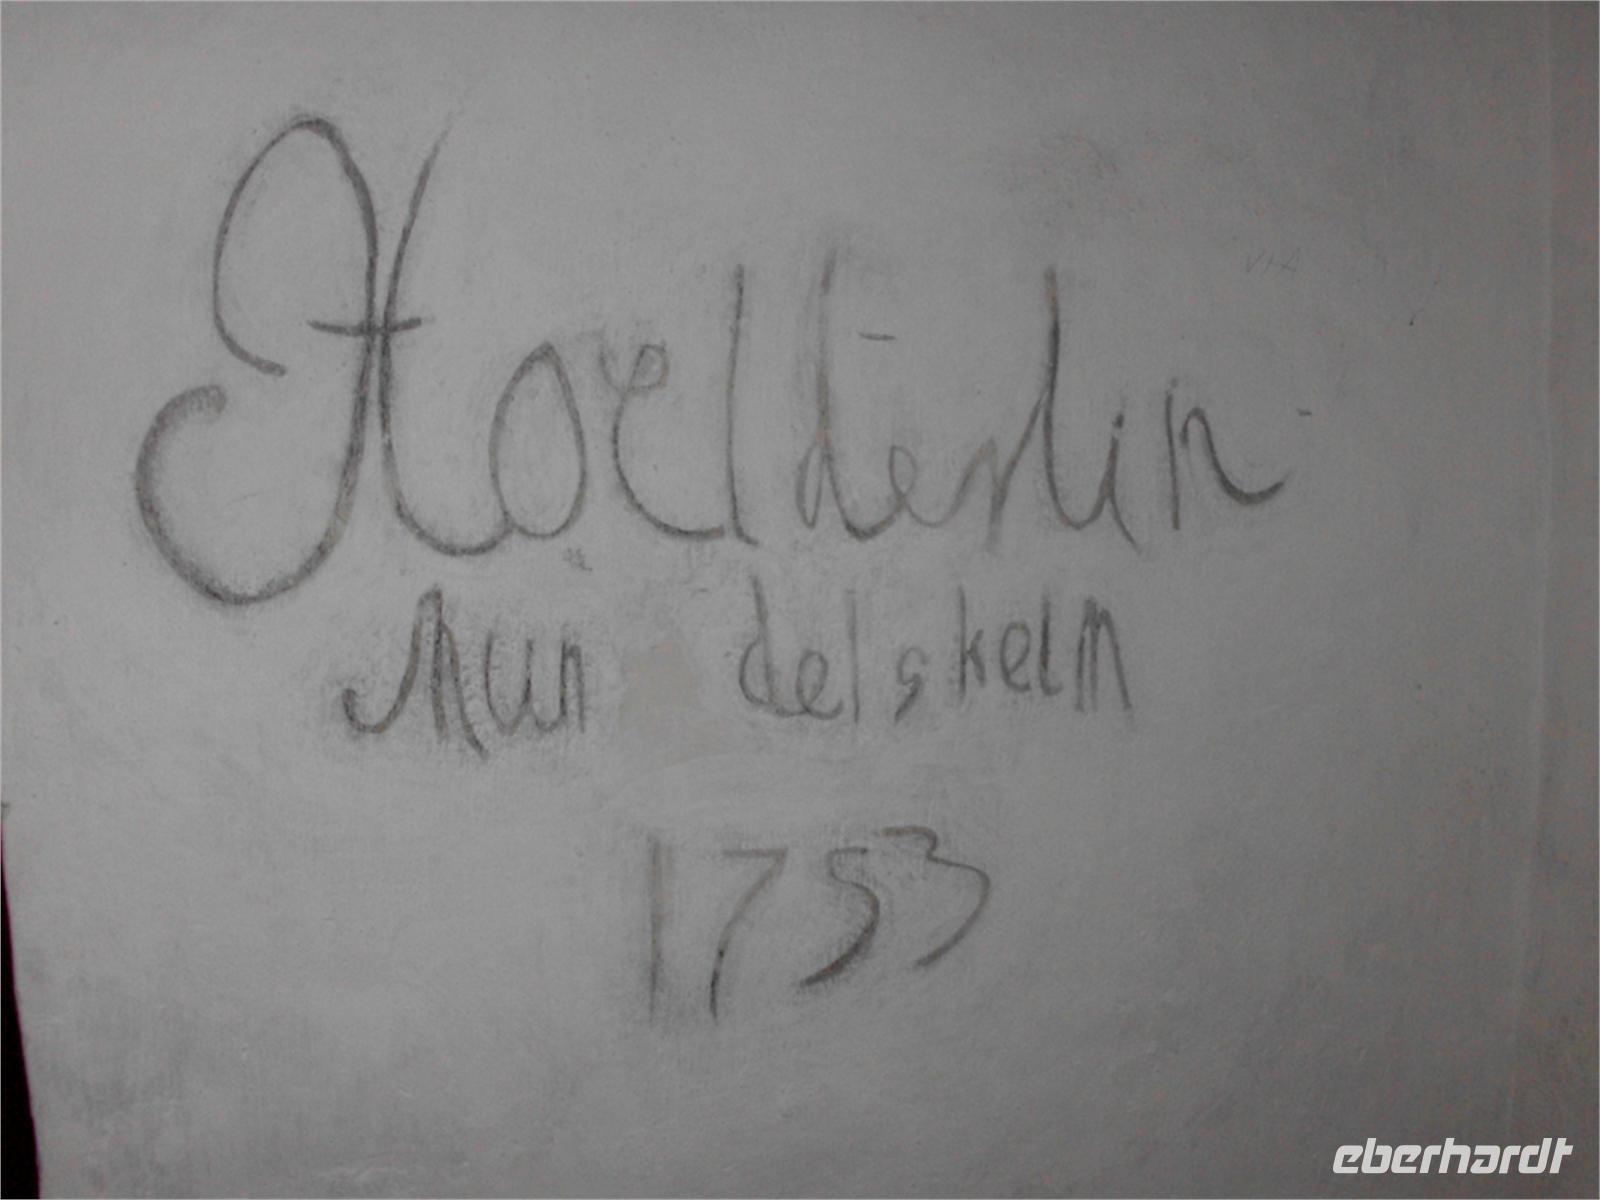 Hoelderlin
Mun delskelm
1753
eberhardt